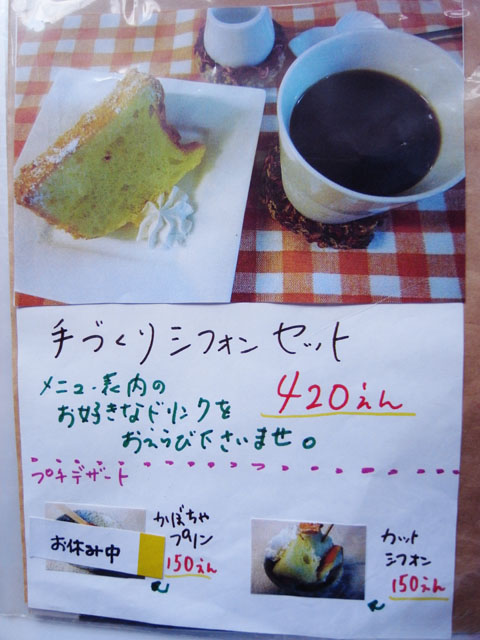 手づくりシフォンセット
メニュー表内の
お好きなドリンクを
おえらび下さいませ。
420えん
プチデザート
かぼちゃ
プリン
150えん
お休み中
カット
シフォン
150えん